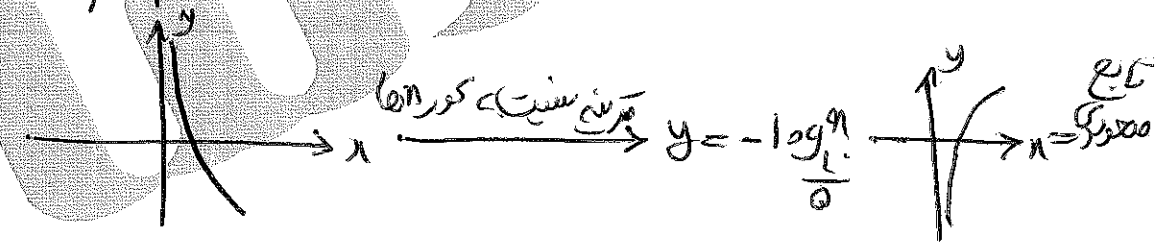 y
x قرینه نسبت به محور xها y = -log x 1/5 y x = تابع صعودی